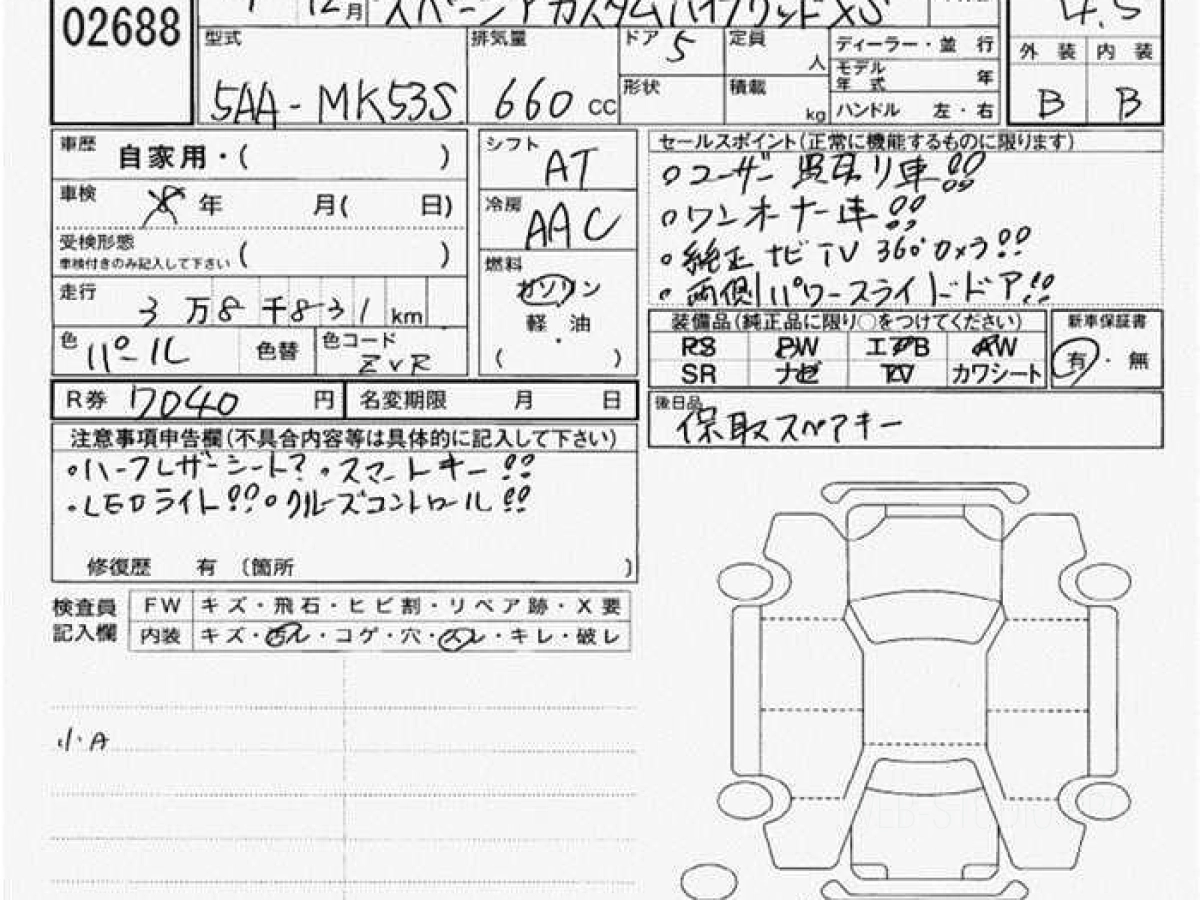 02688
12月 スペーシアカスタムハイブリッドXS
4.5
型式 5AA-MK53S
排気量 660 CC
ドア 5
形状
定員 人
積載 kg
ディーラー・並 行
モデル年式 年
ハンドル 左・右
外 装 内 装
B B
車歴 自家用・( )
車検 8 年 月( 日)
受検形態
車検付きのみ記入して下さい ( )
走行 3 万 8 千 831 km
色 パール 色替 色コード ZVR
シフト AT
冷房 AAC
燃料 ガソリン
軽・油
( )
セールスポイント(正常に機能するものに限ります)
○ユーザー買取り車!!
○ワンオーナー車!!
○純正ナビTV 360°カメラ!!
○両側パワースライドドア!!
装備品(純正品に限り○をつけてください) 新車保証書
PS PW エアB AW 有・無
SR ナビ TV カワシート
R券 7040 円 名変期限 月 日
後日品
保取スペアキー
注意事項申告欄(不具合内容等は具体的に記入して下さい)
○ハーフレザーシート? ○スマートキー!!
○LEDライト!! ○クルーズコントロール!!
修復歴 有 〔箇所 〕
検査員記入欄
FW キズ・飛石・ヒビ割・リペア跡・X要
内装 キズ・汚レ・コゲ・穴・スレ・キレ・破レ
小A